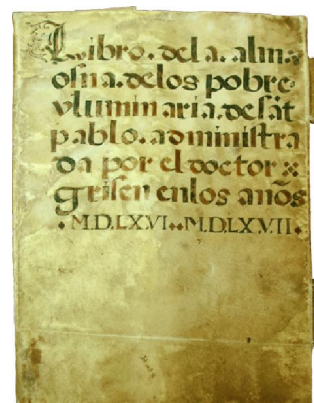 Libro. dela. alm
osna. delos pobre
yluminaria. desāt
pablo. administra
da por el doctor
grisen enlos años
M.D.LXVI M.D.LXVII